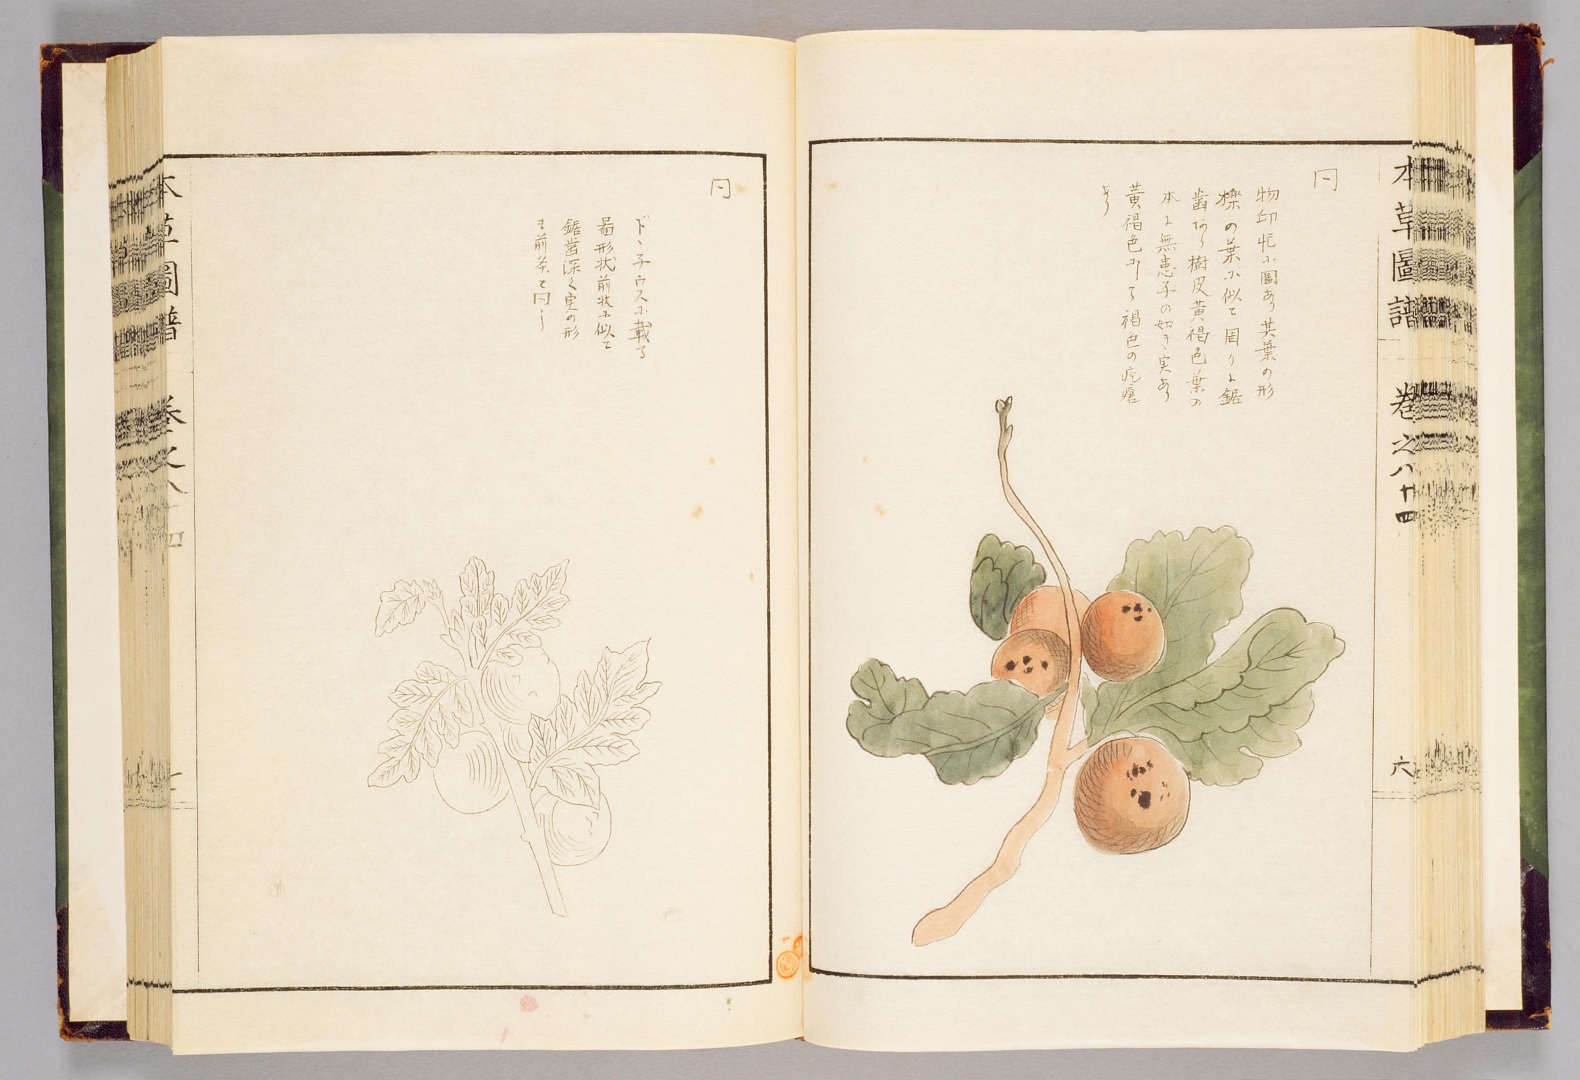 本草圖譜 巻之八十四
六
冂
物印忙ニ圖あり其葉の形
櫟の葉ニ似て周りに鋸
齒あり樹皮黄褐色葉の
本に無患子の如き実あり
黄褐色にして褐色の疙瘩
あり
冂
ド丶子ウスニ載る
啚形状前状ニ似て
鋸齒深く実の形
も前条と冂し
本草圖譜 巻之八十四
七